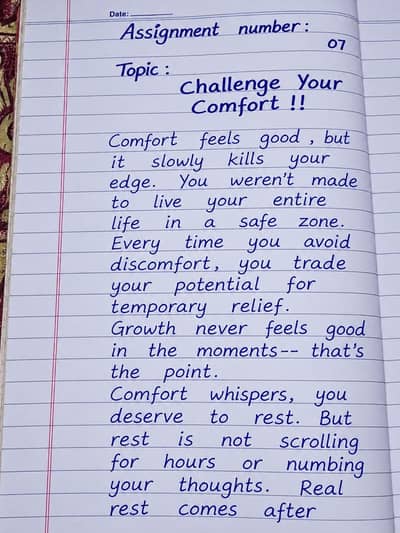 Date:
Assignment number:
07
Topic:
Challenge Your
Comfort !!
Comfort feels good, but
it slowly kills your
edge. You weren't made
to live your entire
life in a safe zone.
Every time you avoid
discomfort, you trade
your potential for
temporary relief.
Growth never feels good
in the moments-- that's
the point.
Comfort whispers, you
deserve to rest. But
rest is not scrolling
for hours or numbing
your thoughts. Real
rest comes after